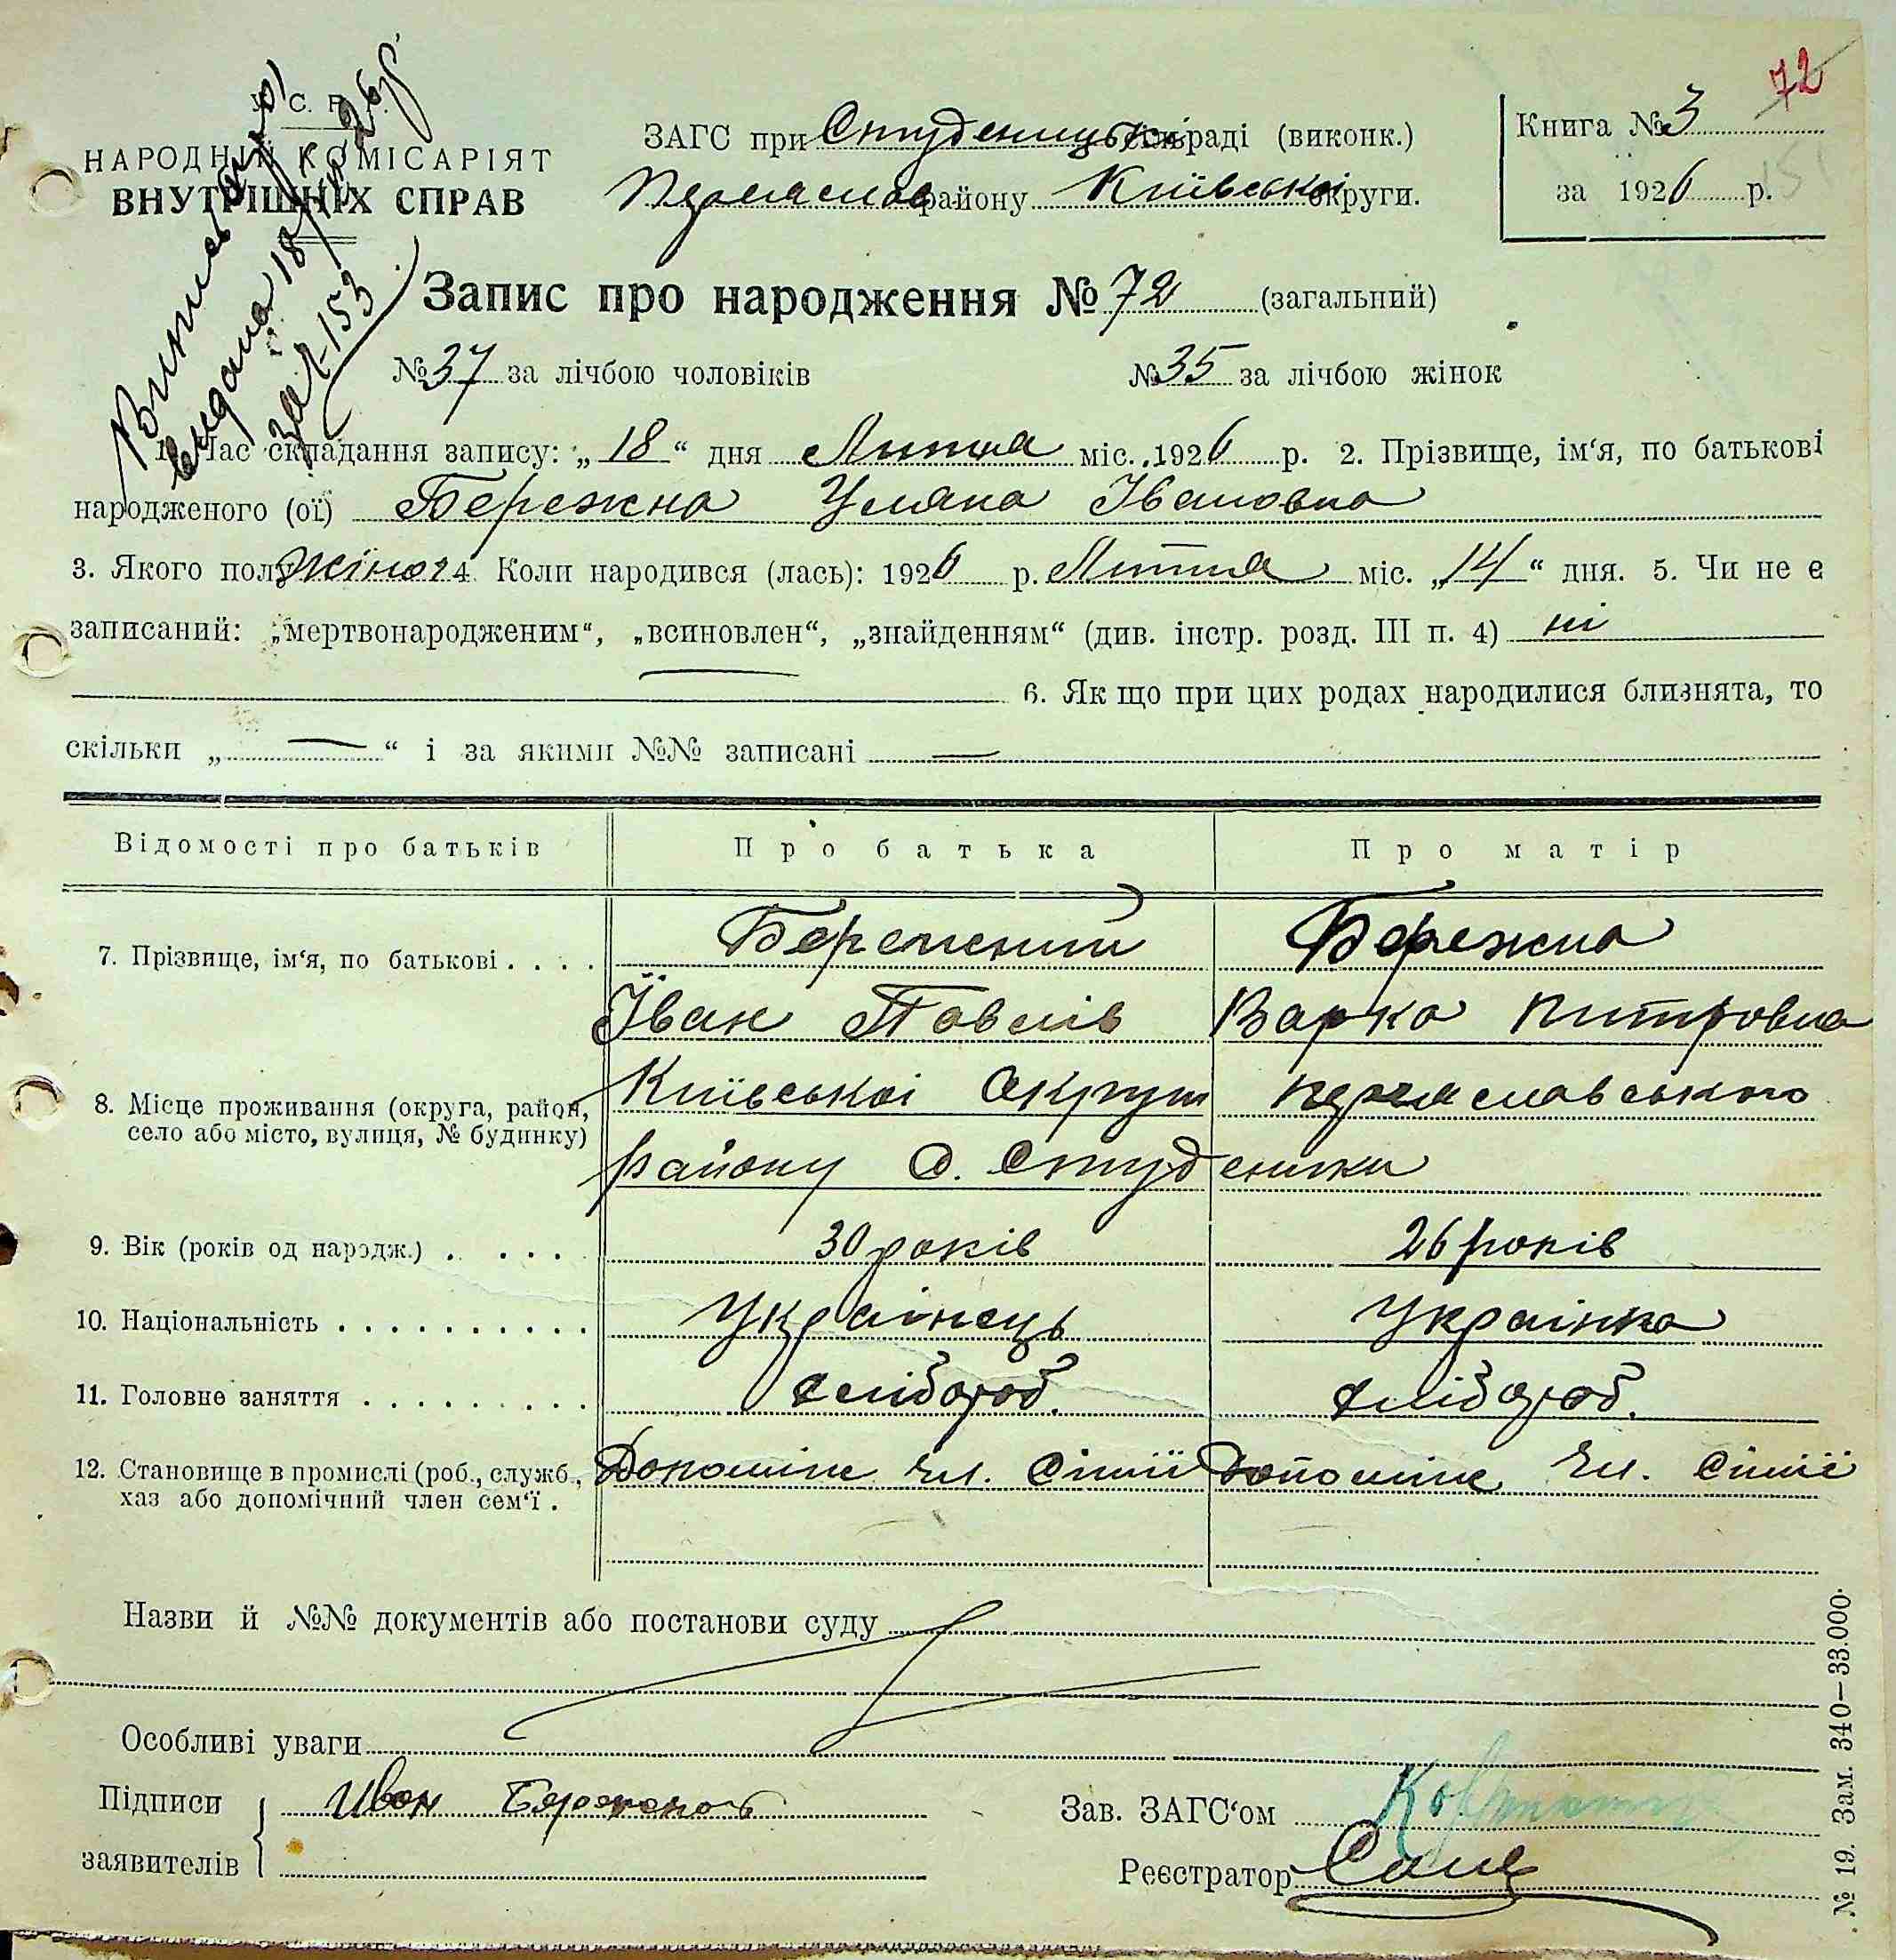 У. С. Р. Р.
НАРОДНІЙ КОМІСАРІЯТ
ВНУТРІШНІХ СПРАВ
Виписъ
видана 18/ 26 р.
за № 153
ЗАГС при Студеницькій сільраді (виконк.)
Переяслав району Київської округи.
72
Книга № 3
за 1926 р.
Запис про народження № 72 (загальний)
№ 37 за лічбою чоловіків № 35 за лічбою жінок
1. Час складання запису: „18“ дня Липня міс. 1926 р. 2. Прізвище, ім'я, по батькові
народженого (ої) Бережна Уляна Івановна
3. Якого полу Жіноч 4. Коли народився (лась): 1926 р. Липня міс. „14“ дня. 5. Чи не є
записаний: „мертвонародженим“, „всиновлен“, „знайденням“ (див. інстр. розд. III п. 4) ні
6. Як що при цих родах народилися близнята, то
скільки „ — “ і за якими №№ записані —
Відомості про батьків Про батька Про матір
7. Прізвище, ім'я, по батькові . . . . Бережний Бережна
Іван Павлів Варка Питровна
8. Місце проживання (округа, район, Київської Округи Переяславського
село або місто, вулиця, № будинку)
району С. Студеники
9. Вік (років од народж.) . . . . . 30 років 26 років
10. Національність . . . . . . . . . . Українець Українка
11. Головне заняття . . . . . . . . . хлібороб. хлібороб.
12. Становище в промислі (роб., служб., Допоміж чл. сімії Допоміж чл. сімії
хаз або допомічний член сем'ї .
Назви й №№ документів або постанови суду
Особливі уваги
Підписи Иван Бережной
заявителів
Зав. ЗАГС'ом
Реєстратор
№ 19. Зам. 340—33.000.